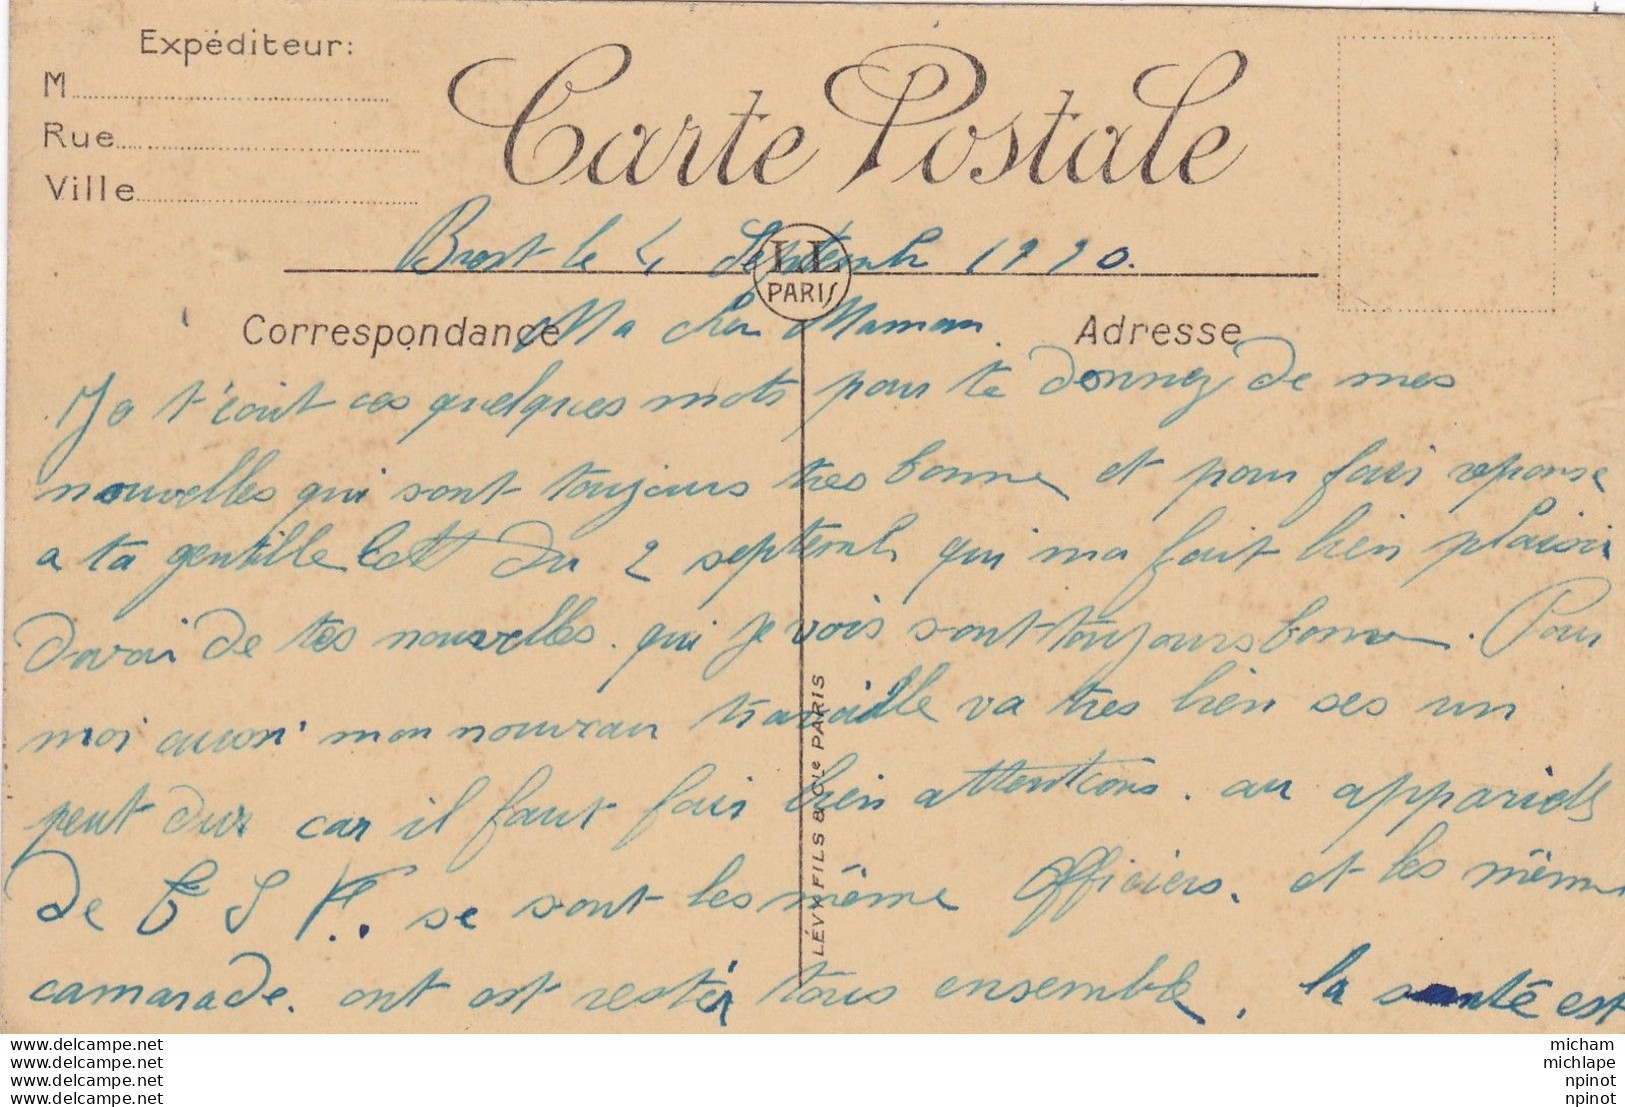 Expéditeur:
M
Rue
Ville
Carte Postale
Brest le 4 Septembr 1920.
LL
PARIS
Correspondance
Adresse
Ma cher Maman.
Je t'écrit ces quelques mots pour te donnez de mes
nouvelles qui sont toujours tres bonne et pour fair reponse
a ta gentille lettr du 2 septembr qui ma fait bien plaisir
davoir de tes nouvelles. qui je vois sont toujours bonne. Pour
moi aussi mon nouveau travaille va tres bien ses un
peut dur car il faut fair bien attentions. au appariels
de T S F.. se sont les même officiers. et les même
camarade. ont est restér tous ensemble. la santé est
LÉVY FILS & Cie PARIS
micham
michlape
npinot
npinot
https://www.delcampe.net
https://www.delcampe.net
https://www.delcampe.net
https://www.delcampe.net